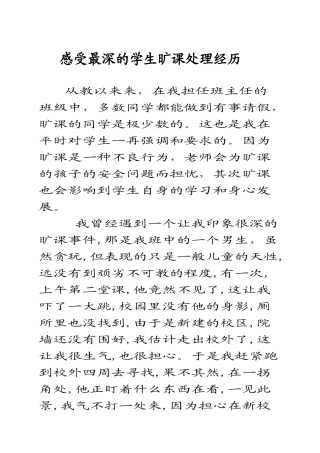 感受最深的学生旷课处理经历
从教以来来，在我担任班主任的
班级中，多数同学都能做到有事请假，
旷课的同学是极少数的。这也是我在
平时对学生一再强调和要求的。因为
旷课是一种不良行为，老师会为旷课
的孩子的安全问题而担忧，其次旷课
也会影响到学生自身的学习和身心发
展。
我曾经遇到一个让我印象很深的
旷课事件，那是我班中的一个男生，虽
然贪玩，但表现的只是一般儿童的天性，
远没有到顽劣不可教的程度，有一次，
上午第二堂课，他竟然不见了，这让我
吓了一大跳，校园里没有他的身影，厕
所里也没见到，由于是新建的校区，院
墙还没有围好，我估计走出校外了，这
让我很生气，也很担心。于是我赶紧跑
到校外四周去寻找，果不其然，在一拐
角处，他正盯着什么东西在看，一见此
景，我气不打一处来，因为担心在新校